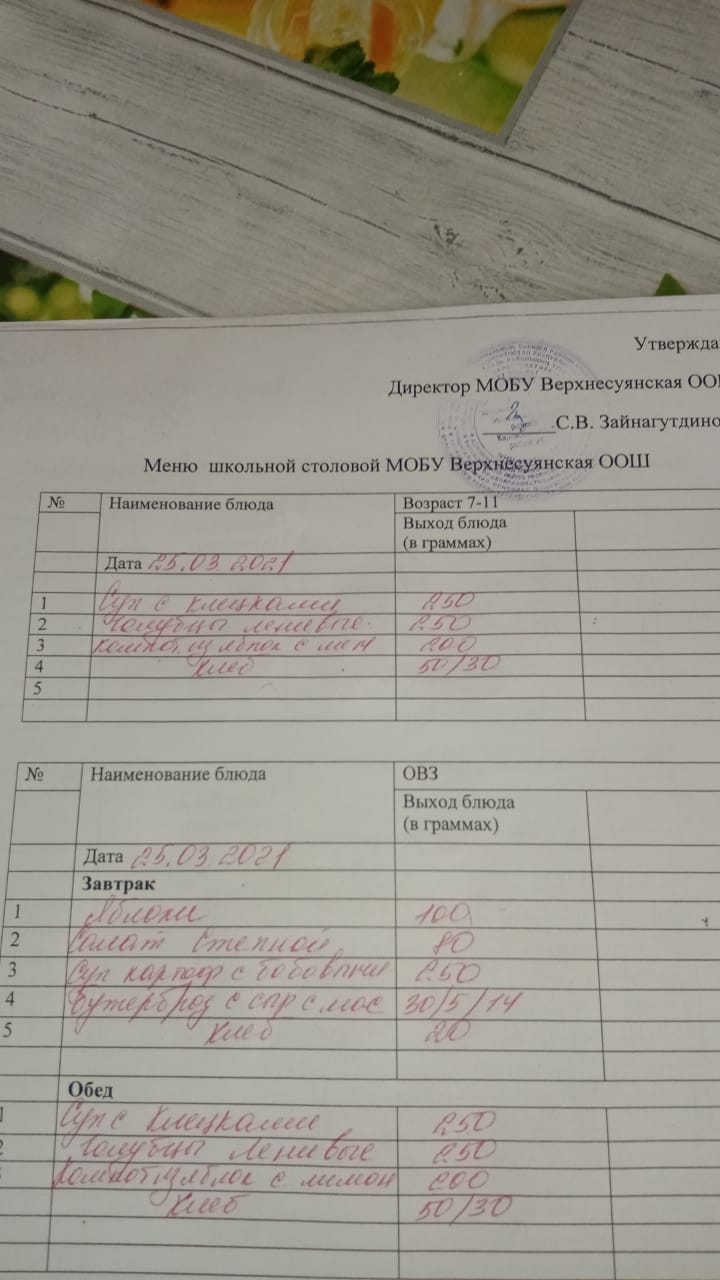 Утвержда
Директор МОБУ Верхнесуянская ООШ
С.В. Зайнагутдино
Меню школьной столовой МОБУ Верхнесуянская ООШ
№ Наименование блюда Возраст 7-11
Выход блюда
(в граммах)
Дата 25.03 2021
1 Суп с клецками 250
2 Голубцы ленивые. 250
3 Компот из яблок с лим 200
4 Хлеб 50/30
5
№ Наименование блюда ОВЗ
Выход блюда
(в граммах)
Дата 25.03 2021
Завтрак
1 Яблоки 100
2 Салат Степной 80
3 Суп картоф с бобовыми 250
4 Бутерброд с сыр с мас 30/5/14
5 Хлеб 20
Обед
1 Суп с клецками 250
2 Голубцы Ленивые 250
Компот из яблок с лимон 200
Хлеб 50/30